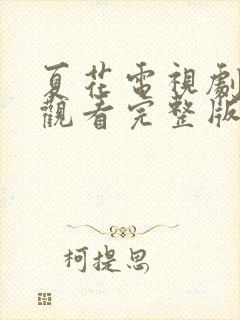 夏花電視劇
觀看完整版
柯提思